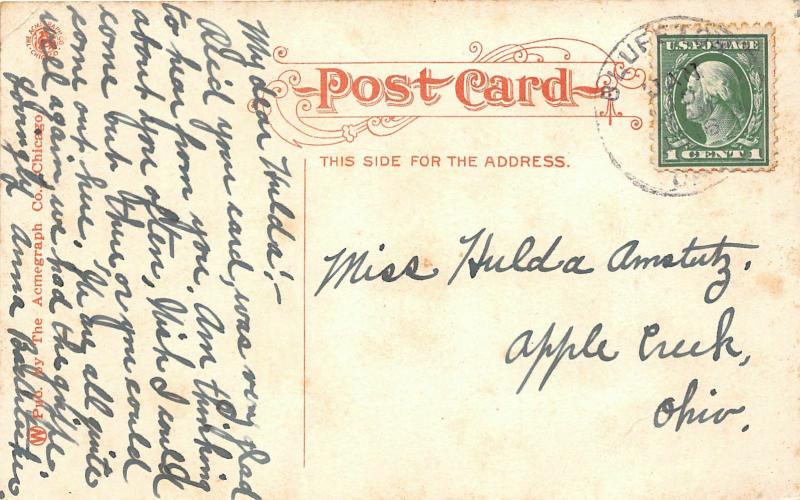 Post Card
THIS SIDE FOR THE ADDRESS.
U.S. POSTAGE
1 CENT 1
My dear Hulda! -
Rec'd you card, was very glad
to hear from you. Am thinking
about you often, Wish I could
come out there or you could
come out here. We are all quite
well again we had the grippe.
Lovingly Anna
Miss Hulda Amstutz.
Apple Creek,
Ohio.
W Pub. by The Acmegraph Co., Chicago